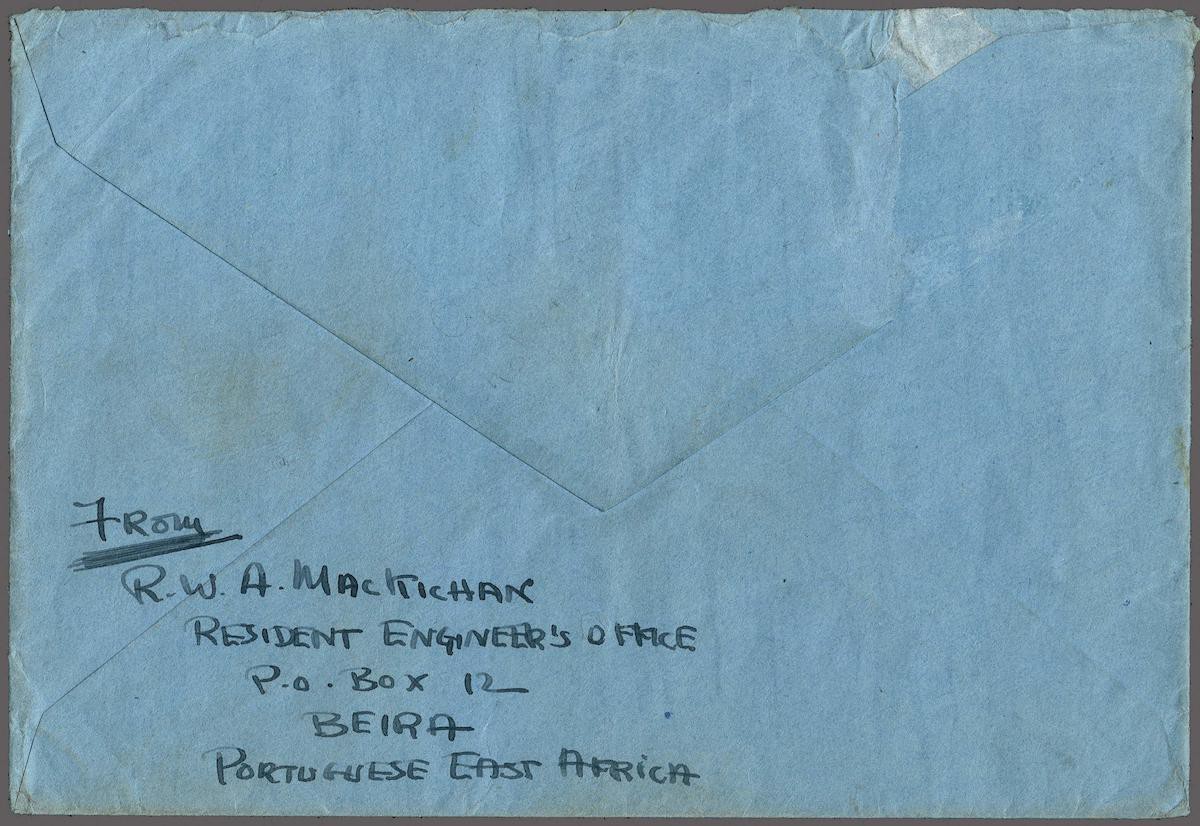 From
R.W.A. MacKichan
Resident Engineer's Office
P.O. Box 12
Beira
Portuguese East Africa